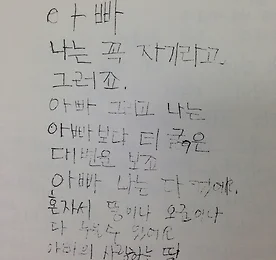 아빠
나는 꼭 자기라고.
그러죠.
아빠 그리고 나는
아빠보다 더 굵은
대변은 보죠
아빠 나는 다 컸에요.
혼자서 똥이나 오줌이나
다 눌 수 있어요
아빠의 사랑하는 딸